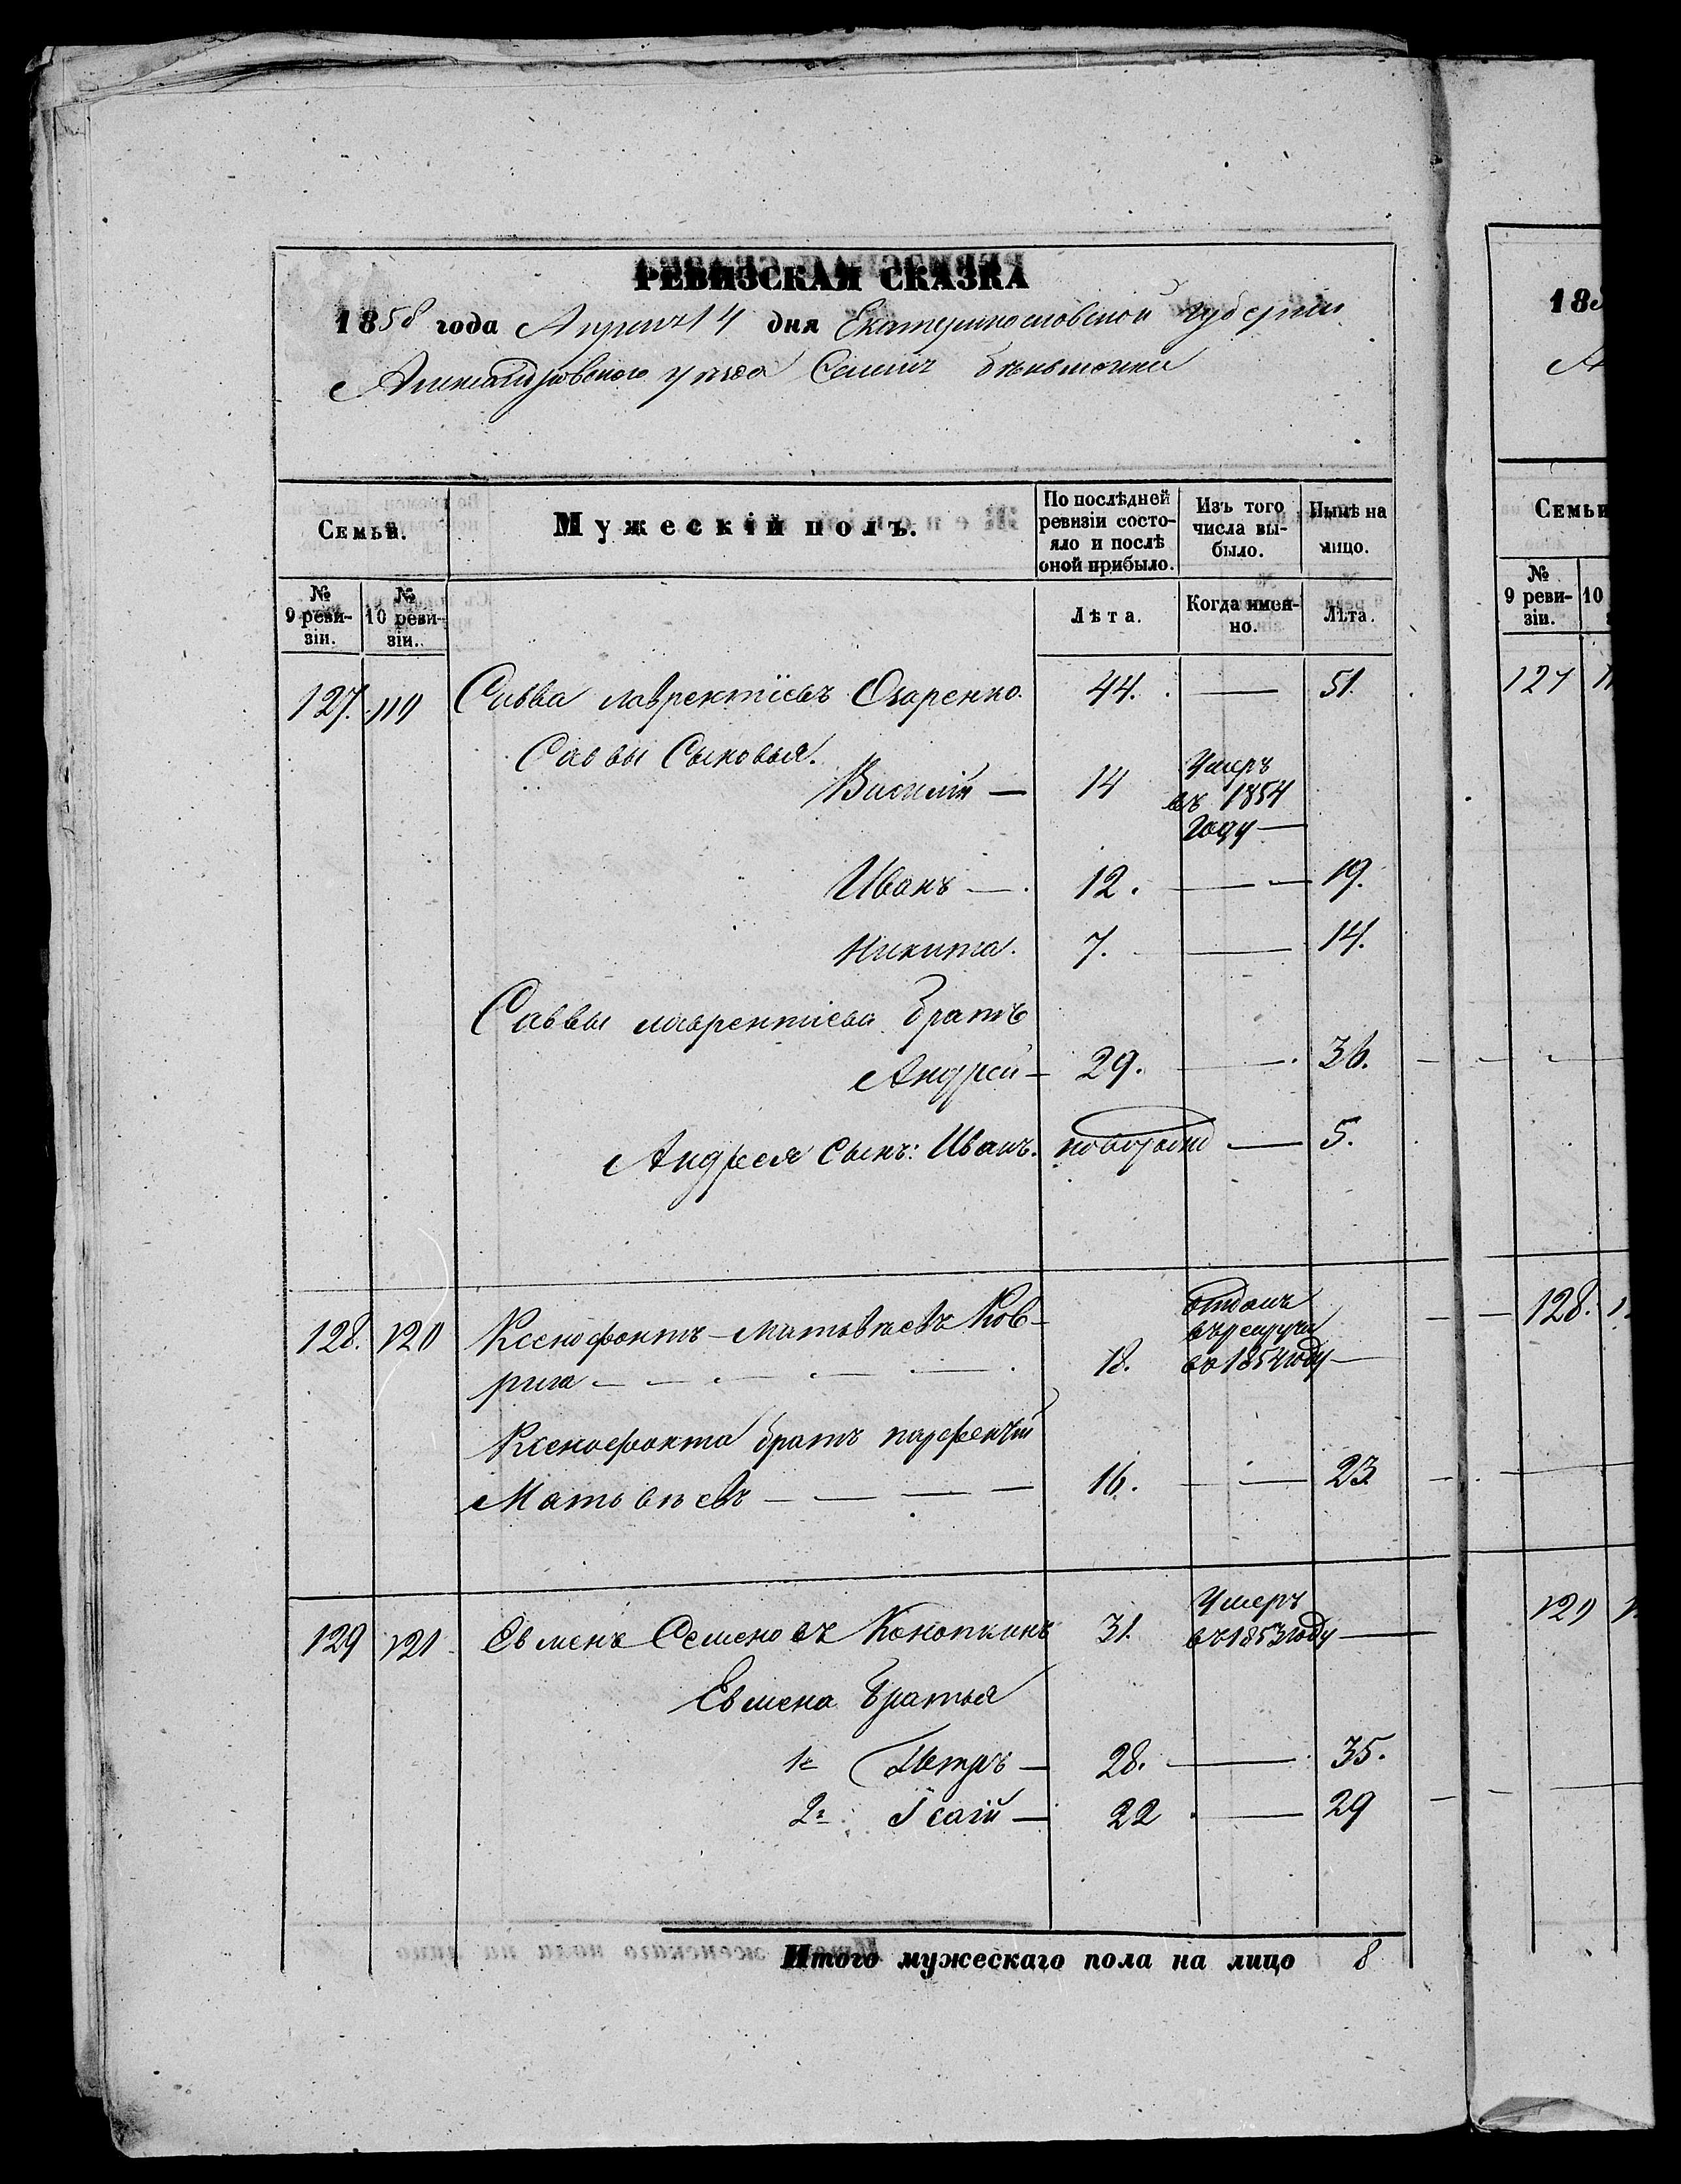 РЕВИЗСКАЯ СКАЗКА
1858 года Апреля 14 дня Екатеринославской Губернии
Александровского уезда Селения
Семьи. Мужескій полъ. По послѣдней ревизіи состояло и послѣ оной прибыло. Изъ того числа выбыло. Нынѣ на лицо.
№ 9 ревизіи. № 10 ревизіи. Лѣта. Когда именно. Лѣта.
127. 119 Савва лаврентіевъ Озаренко. 44. — 51.
Саввы Сыновья.
Василій — 14 Умеръ въ 1854 году —
Иванъ — 12. — 19.
Никита. 7. — 14.
Саввы лаврентіева братъ
Андрей — 29. — 36.
Андрея сынъ: Иванъ. новорожд — 5.
128. 120 Ксенофонтъ Матвѣевъ Ков-
рига — 18. отданъ въ рекруты въ 1854 году —
Ксенофонта братъ парфеній
Матвѣевъ — 16. — 23
129 121 Евменъ Семеновъ Конопкинъ 31. Умеръ въ 1853 году —
Евмена братья
1й Петръ — 28. — 35.
2й Ісаій — 22 — 29
Итого мужескаго пола на лицо 8
18
Семьи
№ 9 ревизіи. 10
127
128.
129